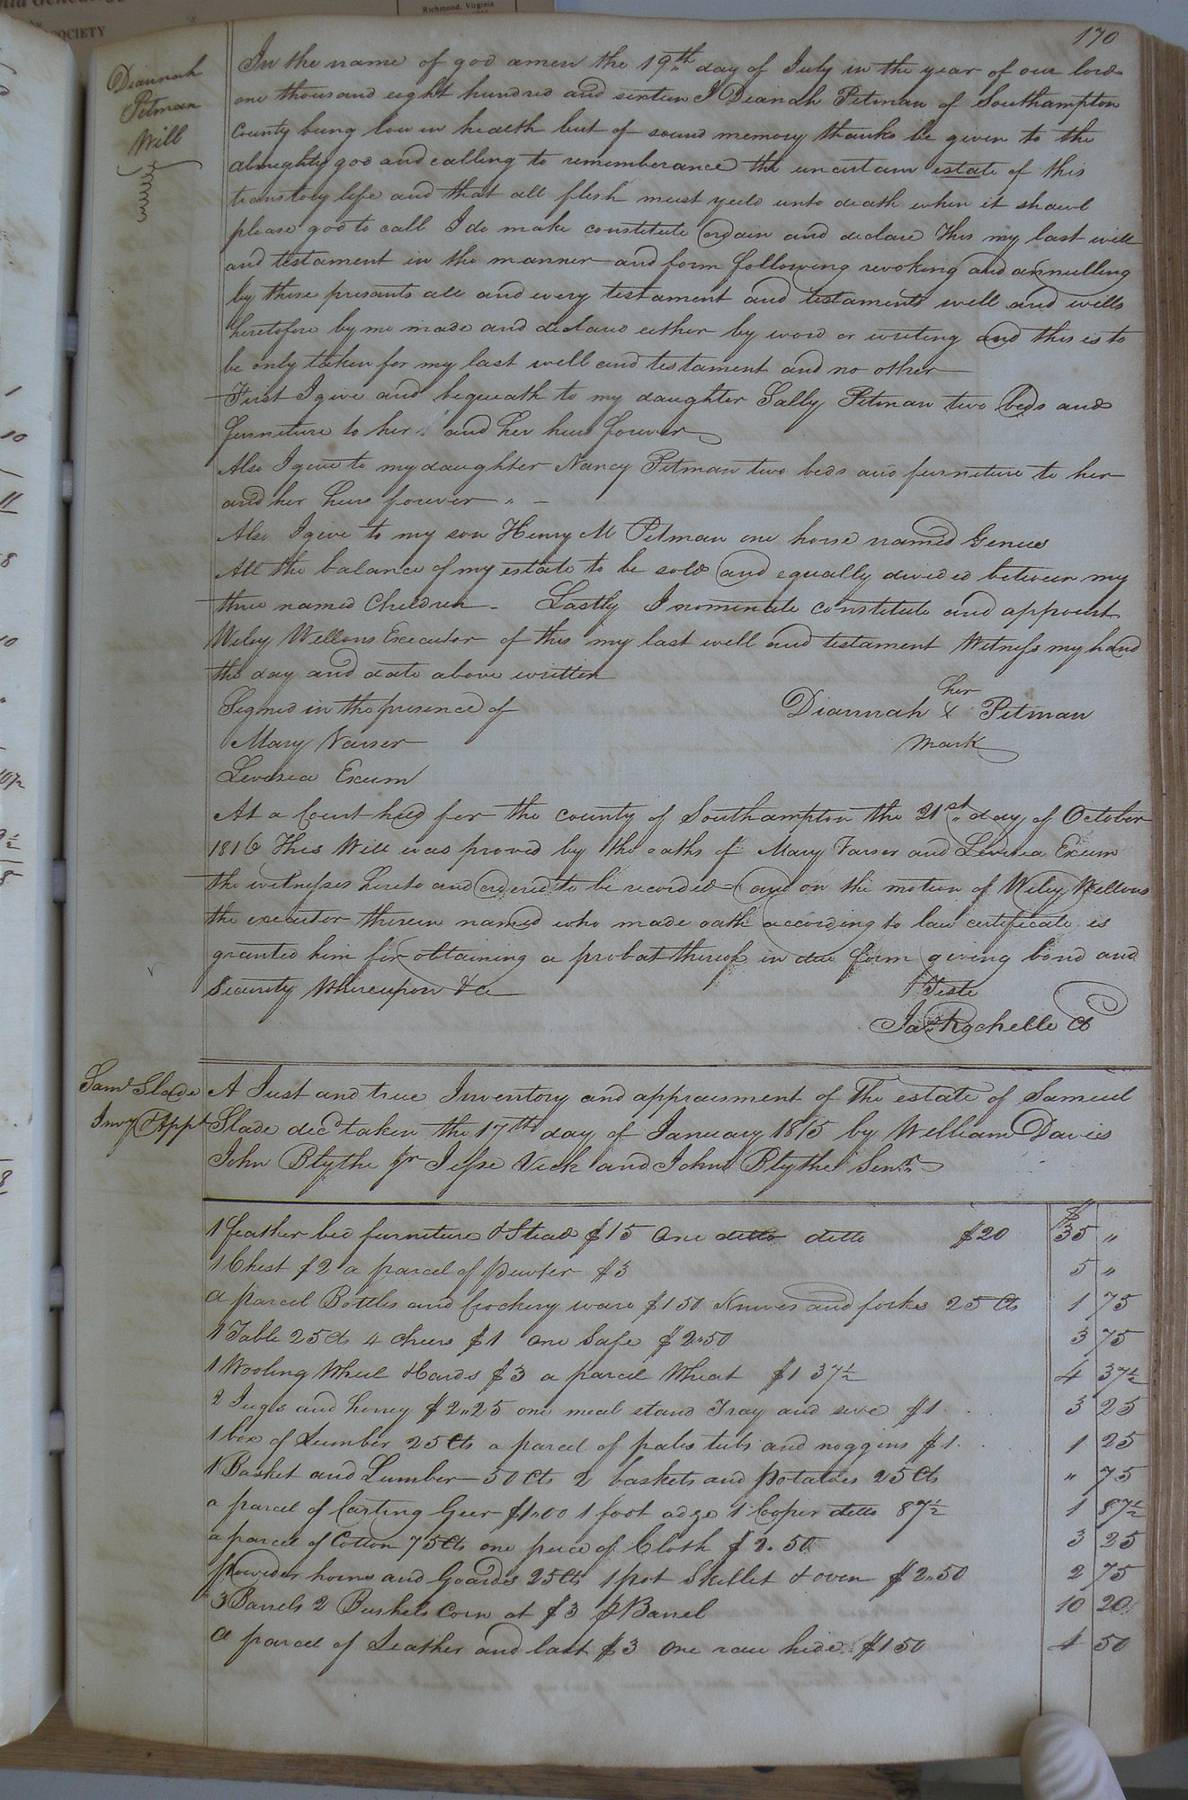 SOCIETY
Richmond, Virginia
170
Diannah
Pitman
Will
In the name of god amen the 19th day of July in the year of our lord
one thousand eight hundred and sixteen I Dianah Pitman of Southampton
County being low in health but of sound memory thanks be given to the
almighty god and calling to rememberance the uncertain estate of this
transtory life and that all flesh must yeeld unto death when it shawl
please god to call I do make constitute ordain and declare This my last will
and testament in the manner and form following revoking and annulling
by these presants all and every testament and testaments will and wills
heretofore by me made and declared either by word or writing and this is to
be only taken for my last will and testament and no other
First I give and bequeath to my daughter Sally Pitman two beds and
furniture to her and her heirs forever
Also I give to my daughter Nancy Pitman two beds and furniture to her
and her heirs forever
Also I give to my son Henry M Pitman one horse named Genius
All the balance of my estate to be sold and equally devided between my
three named Children - Lastly I nominate constitute and appoint
Wiley Wellons Executor of this my last will and testament Witness my hand
the day and date above written
Signed in the presence of
her
Diannah X Pitman
mark
Mary
Levisea Exum
At a Court held for the county of Southampton the 21st day of October
1816 This Will was proved by the oaths of Mary and Levisea Exum
the witnesses hereto and ordered to be recorded - and on the motion of Wiley Wellons
the executor therein named who made oath according to law certificate is
granted him for obtaining a probat thereof in due form giving bond and
Security Whereupon &c
Teste
Jas Rochelle C
Saml Slade
Invy & Appt
A Just and true Inventory and appraisment of The estate of Samuel
Slade decd taken the 17th day of January 1815 by William Davis
John Blythe Jr Jesse Vick and John Blythe Senr
$
1 feather bed furniture & Stead $15 One ditto ditto $20 35 "
1 Chest $2 a parcel of pewter $3 5 "
a parcel Bottles and Crockery ware $1 50 Knives and forks 25 Cts 1 75
1 Table 25 cts 4 cheirs $1 one Safe $2.50 3 75
1 Wooling Wheel & Cards $3 a parcel Wheat $1 37½ 4 37½
2 Jugs and honey $2.25 one meal stand Tray and sive $1 3 25
1 box of Lumber 25 Cts a parcel of pales tubs and noggins $1 1 25
1 Basket and Lumber 50 Cts 2 baskets and Potatoes 25 Cts " 75
a parcel of Carting Geer $1.00 1 foot adge 1 Cooper ditto 87½ 1 87½
a parcel of Cotton 75 Cts one peice of Cloth $2.50 3 25
Powder horns and Goards 25 Cts 1 pot Skillet & oven $2.50 2 75
3 Barrels 2 Bushels Corn at $3 p Barrel 10 20
a parcel of Leather and last $3 one raw hide $1 50 4 50